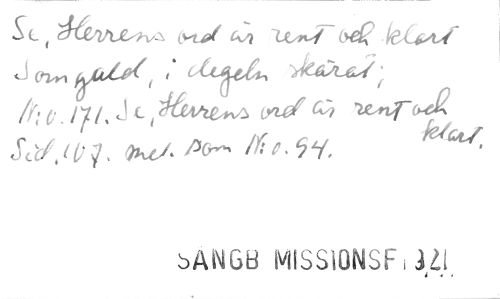 Se, Herrens ord är rent och klart
som guld, i degeln skärat;
N:o. 171. Se, Herrens ord är rent och
klart.
Sid. 107. mel. som N:o. 94.
SÅNGB MISSIONSF